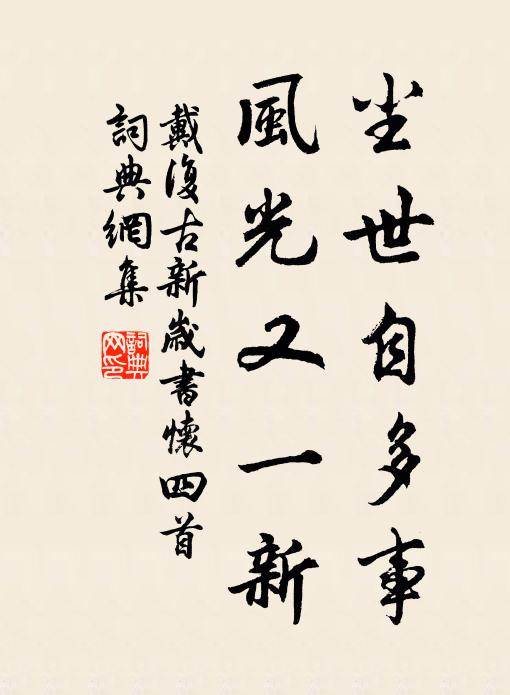 尘世自多事
風光又一新
戴復古新歲書懷四首
詞典網集
詞典
网印